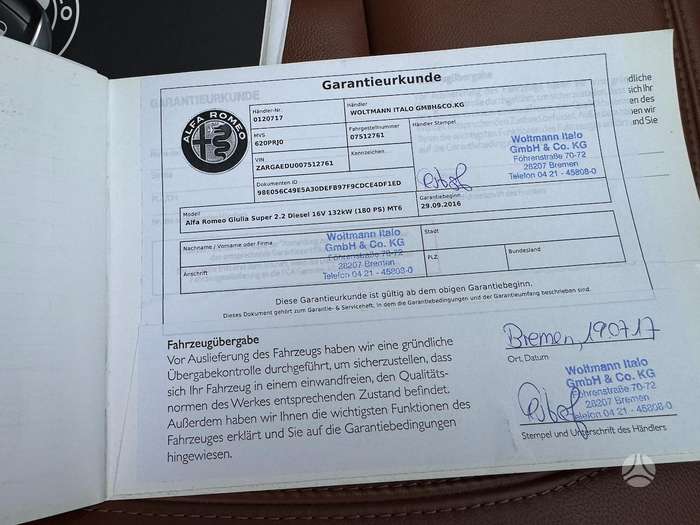 Garantieurkunde
Händler-Nr
0120717
Händler
WOLTMANN ITALO GMBH&CO.KG
MVS
620PRJ0
Fahrgestellnummer
07512761
Händler Stempel
VIN
ZARGAEDU007512761
Kennzeichen
Woltmann Italo
GmbH & Co. KG
Föhrenstraße 70-72
28207 Bremen
Telefon 04 21 - 45808-0
Dokumenten ID
98E056C49E5A30DEFB97F9CDCE4DF1ED
ALFA ROMEO
Modell
Alfa Romeo Giulia Super 2.2 Diesel 16V 132kW (180 PS) MT6
Garantiebeginn
29.09.2016
Nachname / Vorname oder Firma
Woltmann Italo
GmbH & Co. KG
Föhrenstraße 70-72
28207 Bremen
Telefon 04 21 - 45808-0
Stadt
Anschrift
PLZ
Bundesland
Diese Garantieurkunde ist gültig ab dem obigen Garantiebeginn.
Dieses Dokument gehört zum Garantie- & Serviceheft, in dem die Garantiebedingungen und der Garantieumfang beschrieben sind.
Fahrzeugübergabe
Vor Auslieferung des Fahrzeugs haben wir eine gründliche
Übergabekontrolle durchgeführt, um sicherzustellen, dass
sich Ihr Fahrzeug in einem einwandfreien, den Qualitäts-
normen des Werkes entsprechenden Zustand befindet.
Außerdem haben wir Ihnen die wichtigsten Funktionen des
Fahrzeuges erklärt und Sie auf die Garantiebedingungen
hingewiesen.
Bremen, 19.07.17
Ort, Datum
Woltmann Italo
GmbH & Co. KG
Föhrenstraße 70-72
28207 Bremen
Telefon 04 21 - 45808-0
Stempel und Unterschrift des Händlers